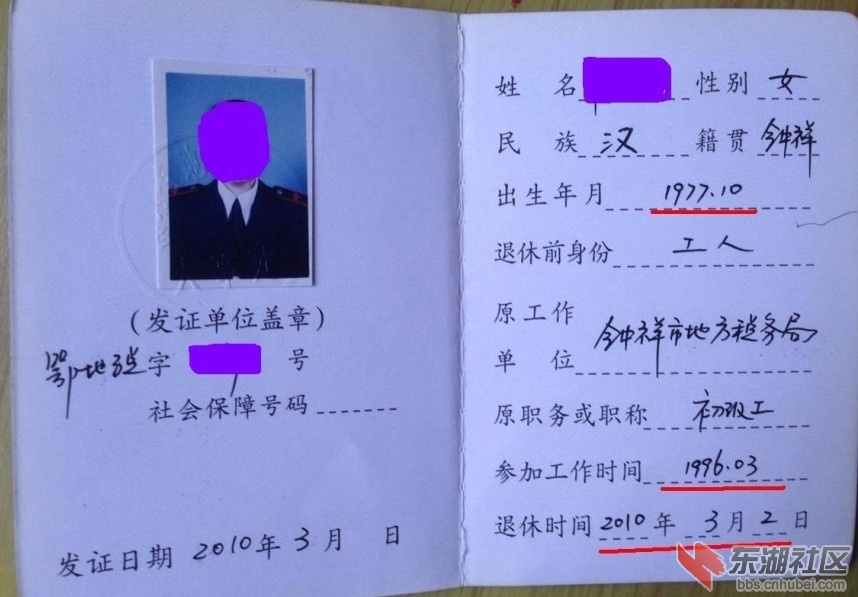 (发证单位盖章)
鄂地税字 号
社会保障号码
发证日期 2010年3月 日
姓 名 性别 女
民 族 汉 籍贯 钟祥
出生年月 1977.10
退休前身份 工人
原工作
单 位 钟祥市地方税务局
原职务或职称 初级工
参加工作时间 1996.03
退休时间 2010年3月2日
东湖社区
bbs.cnhubei.com